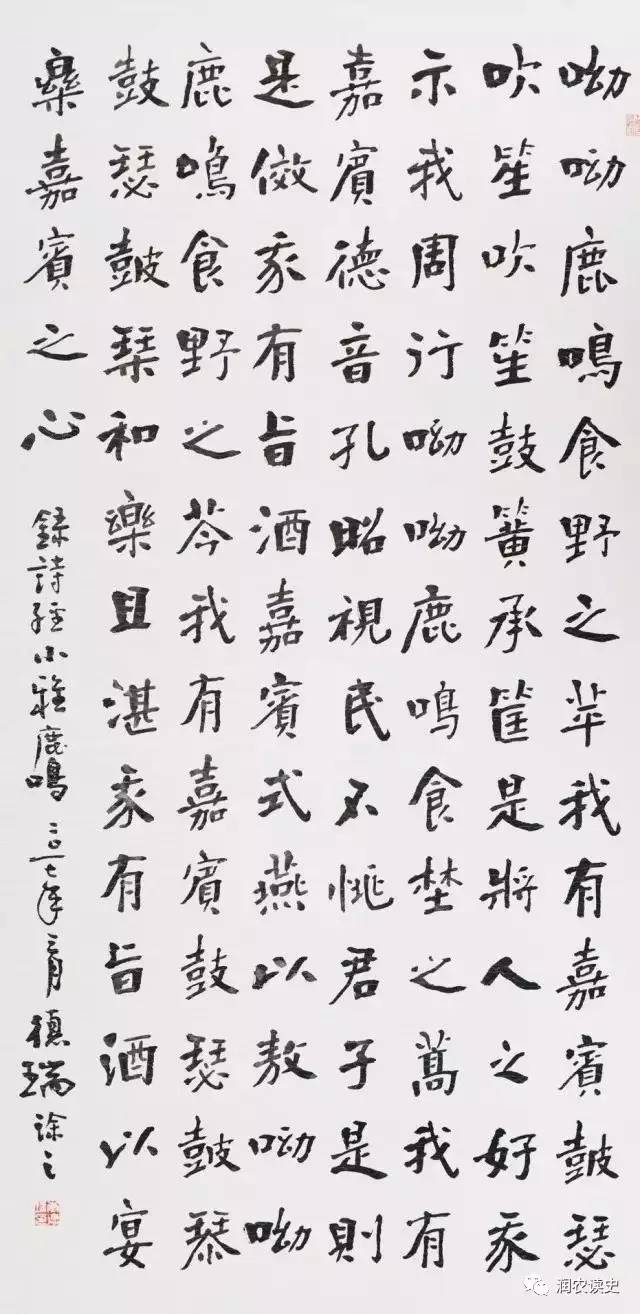 呦呦鹿鳴食野之苹我有嘉賓鼓瑟
吹笙吹笙鼓簧承筐是將人之好我
示我周行呦呦鹿鳴食埜之蒿我有
嘉賓德音孔昭視民不恌君子是則
是傚我有旨酒嘉賓式燕以敖呦呦
鹿鳴食野之芩我有嘉賓鼓瑟鼓琴
鼓瑟鼓琴和樂且湛我有旨酒以宴
樂嘉賓之心
錄詩經小雅鹿鳴 二〇一七年 德瑞
润农读史